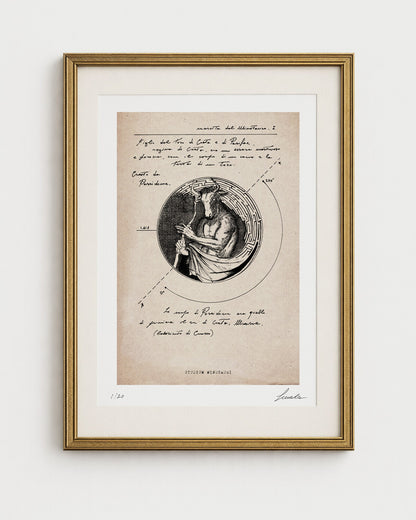 nascita del Minotauro. I
Figlio del Toro di Creta e di Pasifae,
regina di Creta, era un essere mostruoso
e feroce, con il corpo di un uomo e la
testa di un toro.
Creato da
Poseidone.
Lo scopo di Poseidone era quello
di punire il re di Creta, Minosse.
(labirinto di Cnosso)
STUDIUM MINOTAURI
1/20